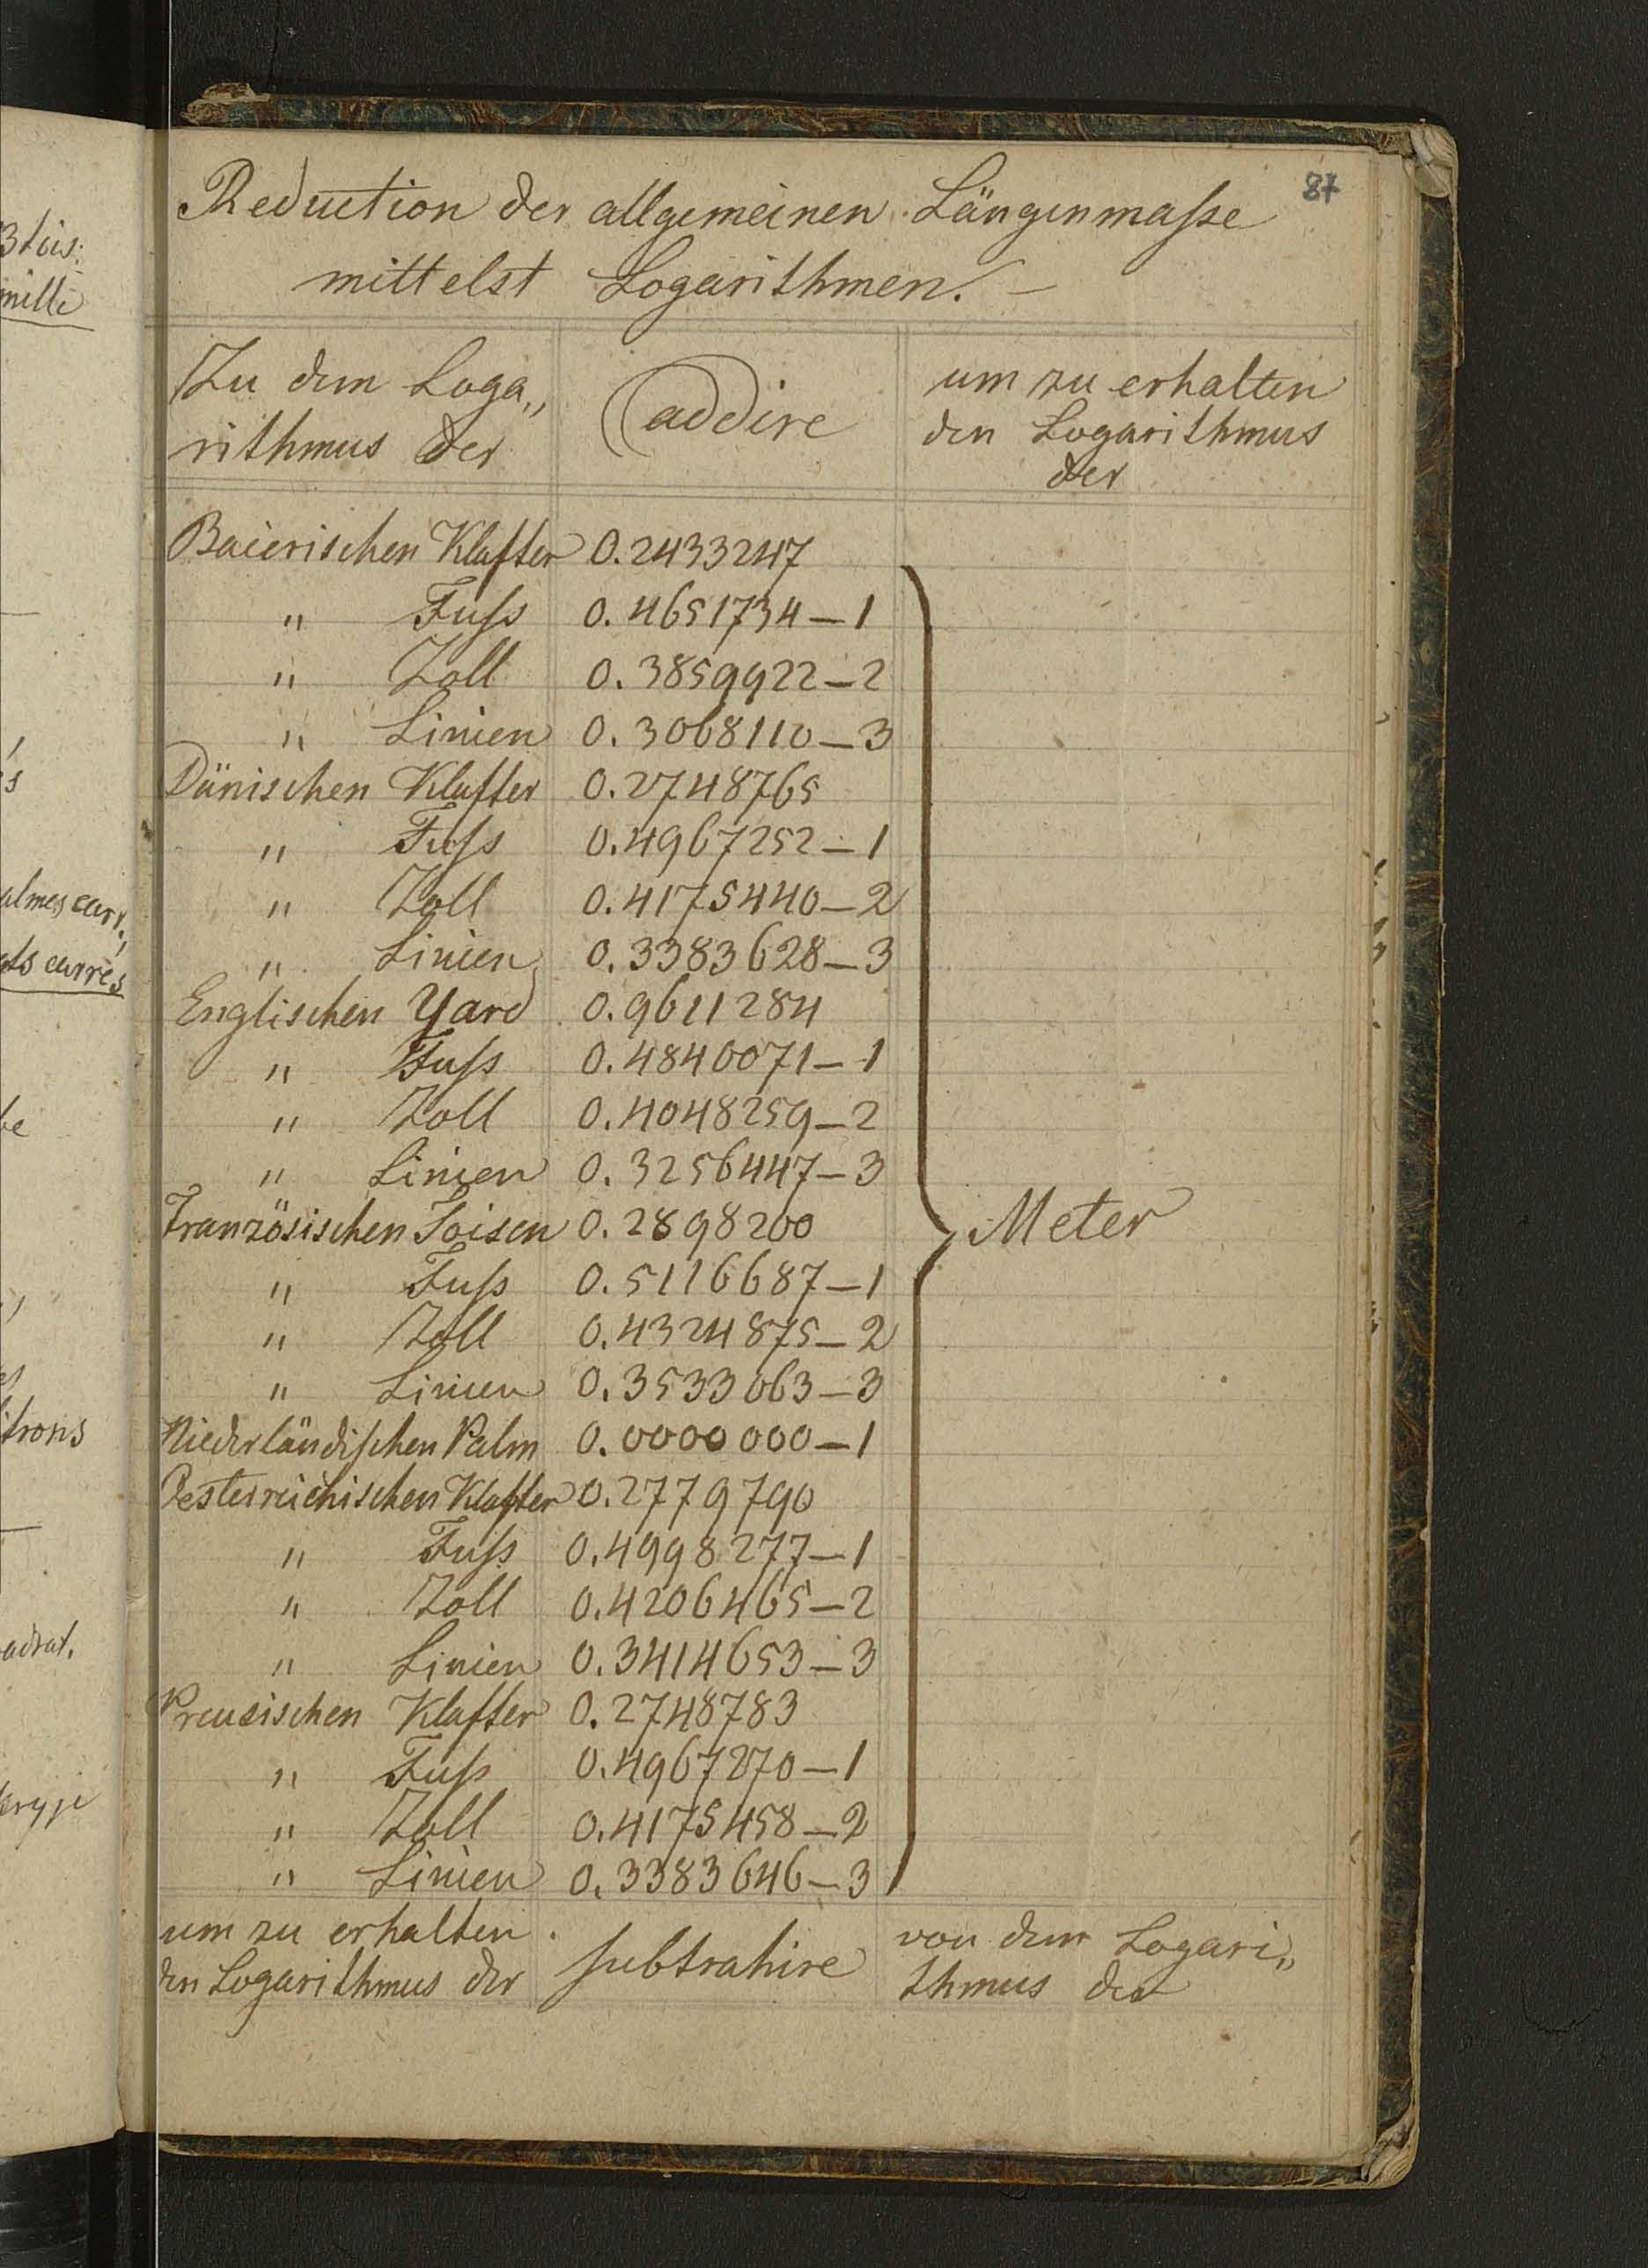 87
Reduction der allgemeinen Längenmaſse
mittelst Logarithmen. —
Zu dem Loga„
rithmus der
addire
um zu erhalten
den Logarithmus
der
Baierischen Klafter 0.2433247
" Fuſs 0.4651734—1
" Zoll 0.3859922—2
" Linien 0.3068110—3
Dänischen Klafter 0.2748765
" Fuſs 0.4967252—1
" Zoll 0.4175440—2
" Linien 0.3383628—3
Englischen Yard 0.9611284
" Fuſs 0.4840071—1
" Zoll 0.4048259—2
" Linien 0.3256447—3
Französischen Toisen 0.2898200
Meter
" Fuſs 0.5116687—1
" Zoll 0.4324875—2
" Linien 0.3533063—3
Niederländiſchen Palm 0.0000000—1
Oesterreichischen Klafter 0.2779790
" Fuſs 0.4998277—1
" Zoll 0.4206465—2
" Linien 0.3414653—3
Preusischen Klafter 0.2748783
" Fuſs 0.4967270—1
" Zoll 0.4175458—2
" Linien 0.3383646—3
um zu erhalten
den Logarithmus der
ſubtrahire
von dem Logari„
thmus der
mille
carr.,
carrés